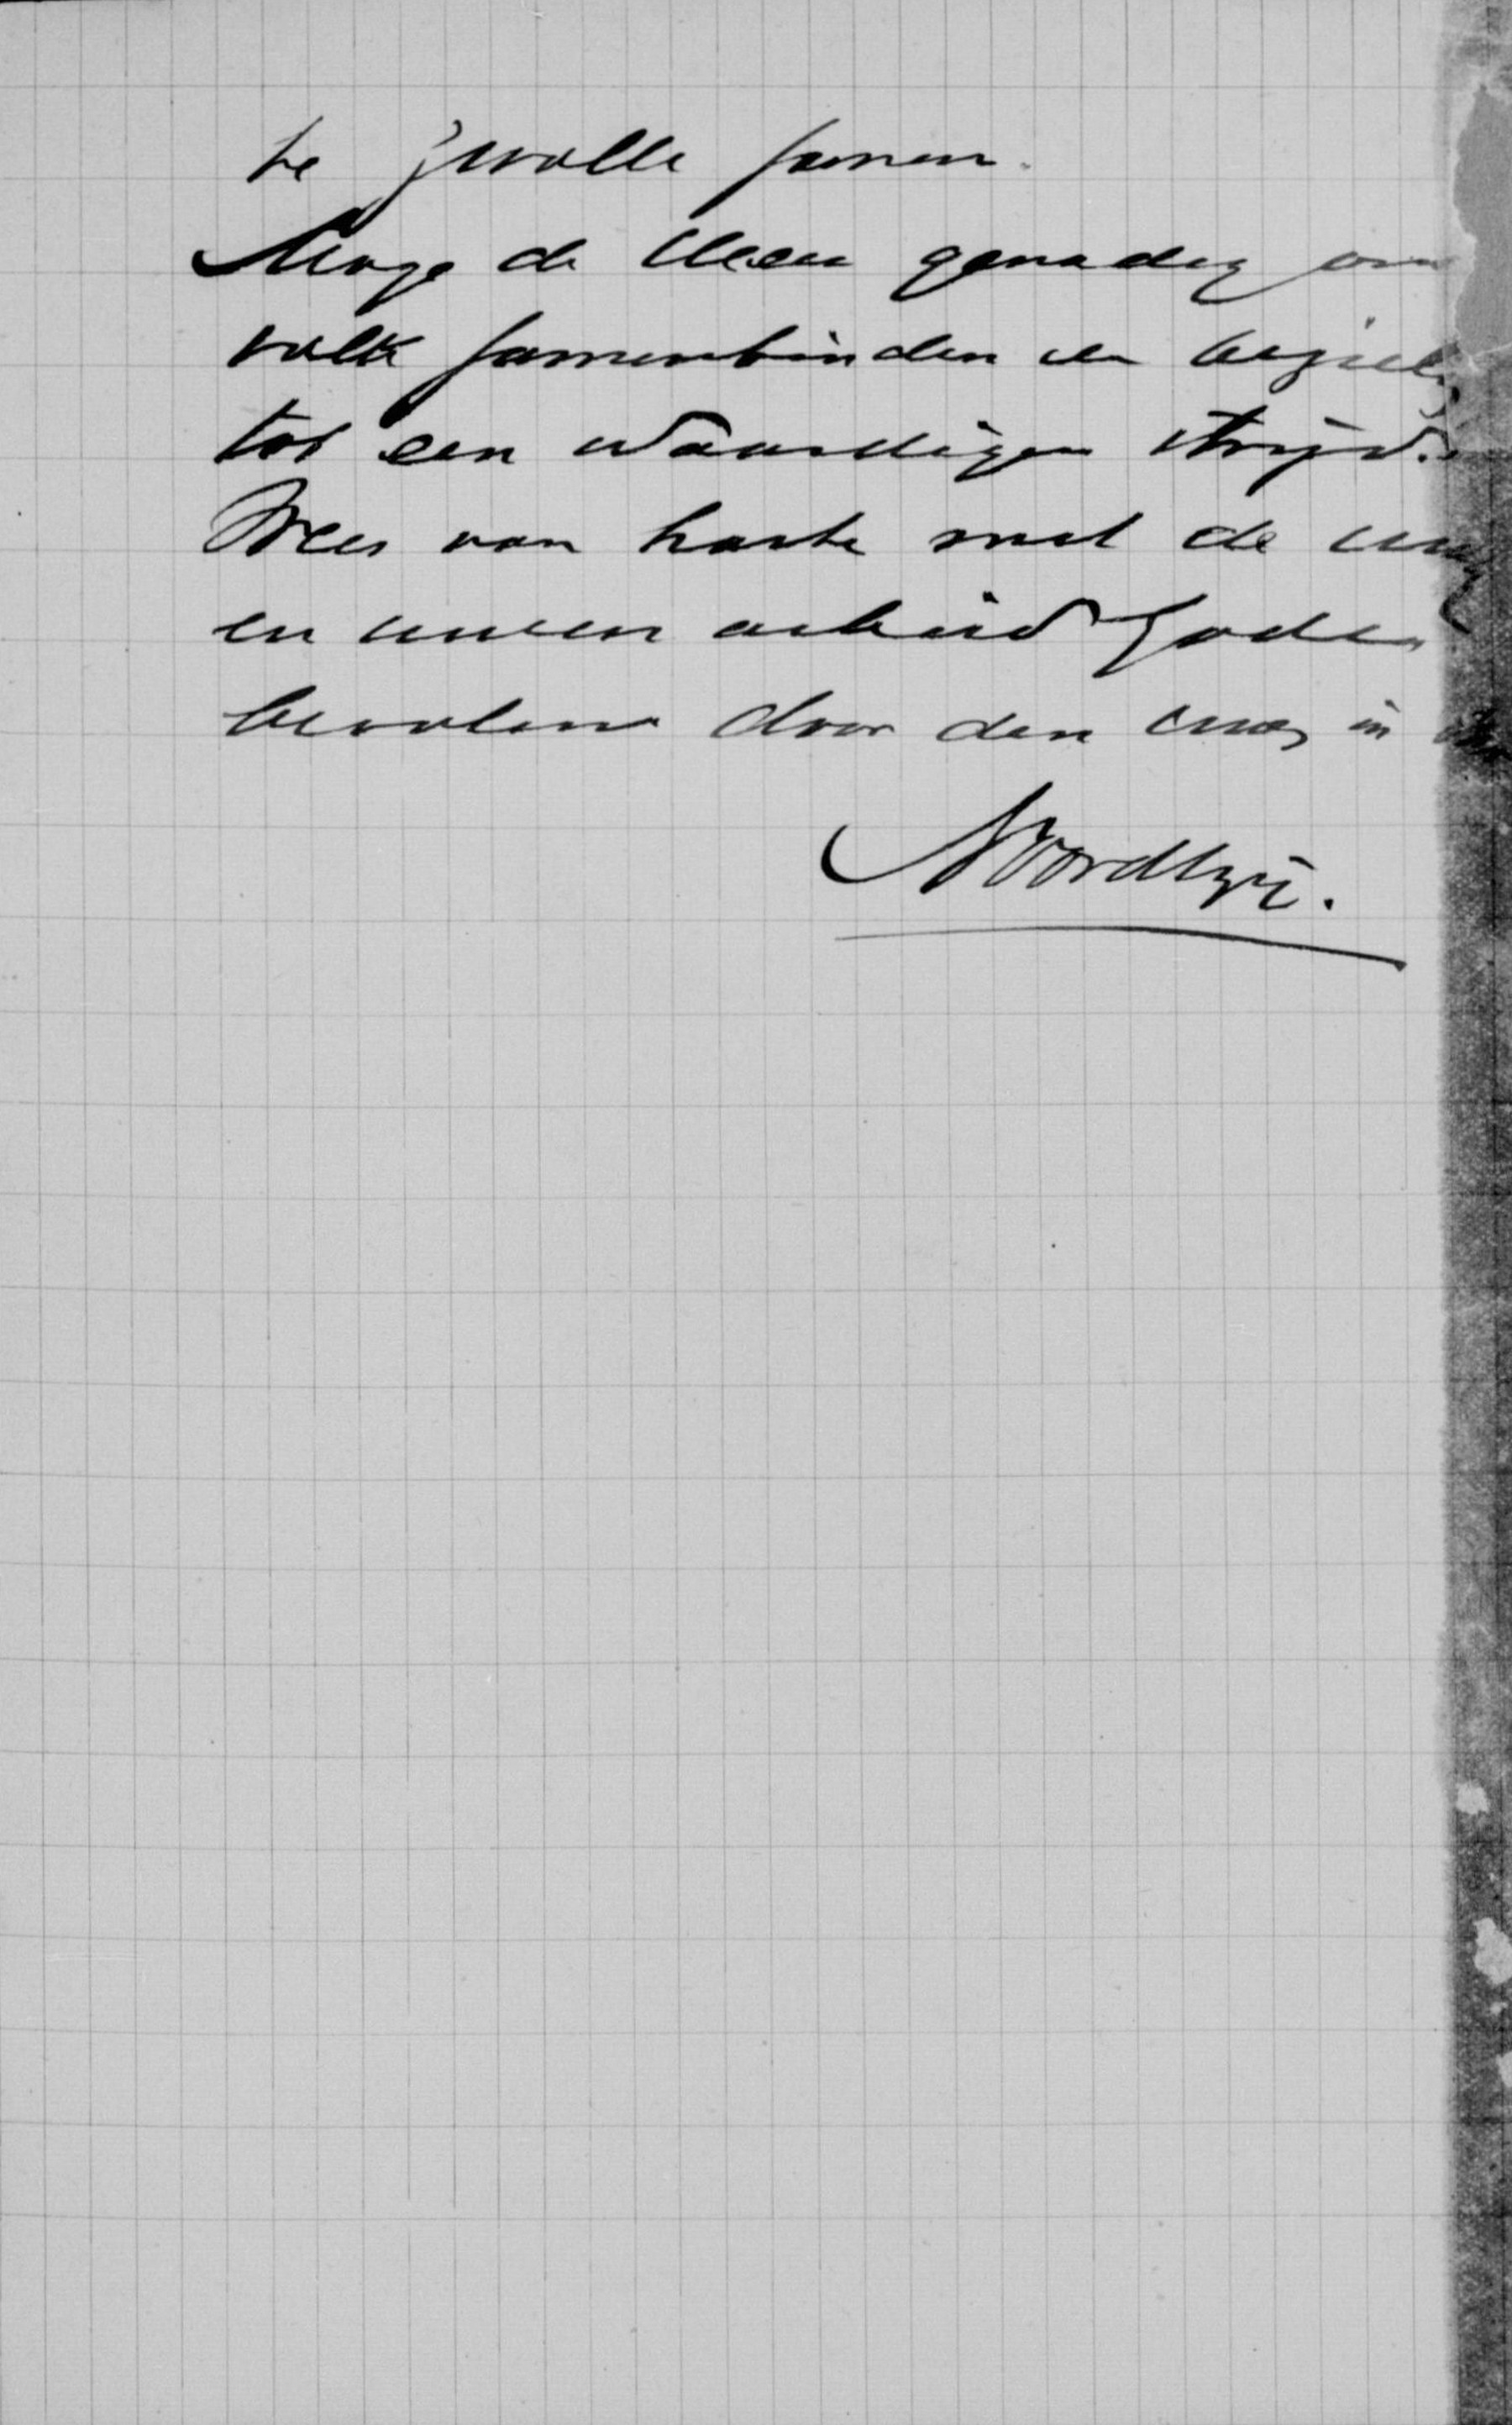 te Zwolle samen.
Moge de Heer genadig ons
volk samenbinden en bezielen
tot een waardigen strijd.
Wees van harte met de uwen
en uwen arbeid Gode
bevolen door den uwen in
Noordtzij.